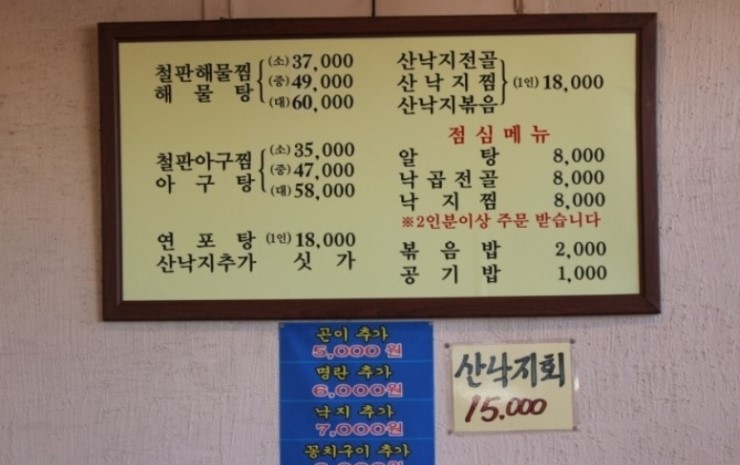 철판해물찜 (소) 37,000
해물탕 (중) 49,000
(대) 60,000
철판아구찜 (소) 35,000
아구탕 (중) 47,000
(대) 58,000
연포탕 (1인) 18,000
산낙지추가 싯가
산낙지전골
산낙지찜 (1인) 18,000
산낙지볶음
점심메뉴
알탕 8,000
낙곱전골 8,000
낙지찜 8,000
※2인분이상 주문 받습니다
볶음밥 2,000
공기밥 1,000
곤이 추가
5,000원
명란 추가
6,000원
낙지 추가
7,000원
꽁치구이 추가
산낙지회
15.000